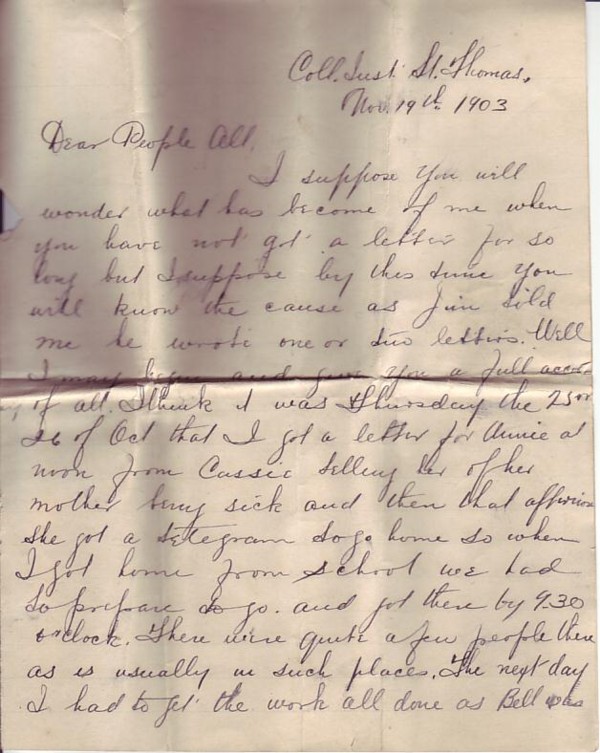 Coll. Inst. St. Thomas,
Nov. 19th 1903
Dear People All,
I suppose you will
wonder what has become of me when
you have not got a letter for so
long but I suppose by this time you
will know the cause as Jim told
me he wrote one or two letters. Well
I may begin and give you a full accou
of all. I think it was Thursday the 25 or
26 of Oct that I got a letter for Annie at
noon from Cassie telling her of her
mother being sick and then that afternoon
she got a telegram to go home so when
I got home from school we had
to prepare to go. and got there by 9.30
o'clock. There were quite a few people there
as is usually in such places. The next day
I had to get the work all done as Bell was